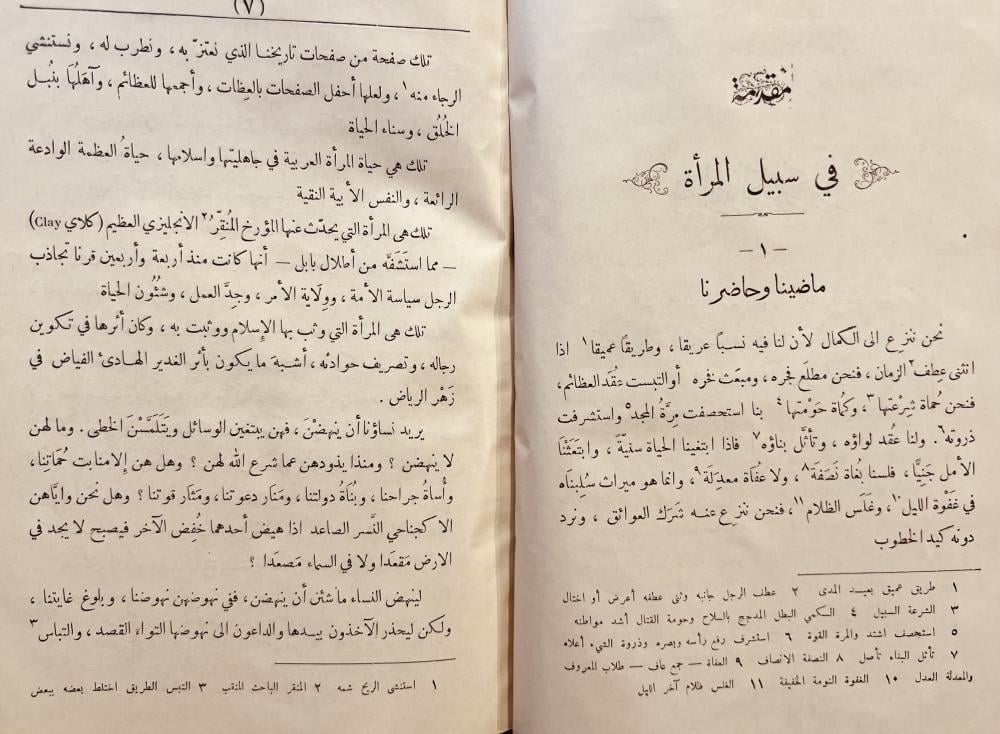 مقدمة
في سبيل المرأة
— ١ —
ماضينا وحاضرنا
نحن ننزع الى الكمال لأن لنا فيه نسبًا عريقا ، وطريقًا عميقا ١ اذا
انثنى عِطف ٢ الزمان ، فنحن مطلَع فجره ، ومبعَث فخره أو التبست عُقَد العظائم ،
فنحن حُماة شِرْعَتها ٣ ، وكُماة حَوْمتها ٤ بنا استحصفت مِرَّةُ المجد ٥ واستشرفت
ذروته ٦ . ولنا عُقد لواؤه ، وتأثَّل بناؤه ٧ فاذا ابتغينا الحياة سنيّةً ، وابتغَثْنا
الأمل جَنِيًّا ، فلسنا بُغاة نَصَفَة ٨ ، ولا عُفَاة معدِلَة ٩ ، وانما هو ميراث سُلِبناه
في غَفْوة الليل ١٠ ، وغَلَس الظلام ١١ ، فنحن ننزع عنه شَرَك العوائق ، ونرد
دونه كيد الخطوب
١ طريق عميق بعيد المدى ٢ عطف الرجل جانبه وثنى عطفه أعرض أو اختال
٣ الشرعة السبيل ٤ الكمي البطل المدجج بالسلاح وحومة القتال أشد مواطنه
٥ استحصف اشتد والمرة القوة ٦ استشرف رفع رأسه وبصره وذروة الشيء أعلاه
٧ تأثل البناء تأصل ٨ النصفة الانصاف ٩ العفاة — جمع عاف — طلاب المعروف
والمعدلة العدل ١٠ الغفوة النومة الخفيفة ١١ الغلس ظلام آخر الليل
(٧)
تلك صفحة من صفحات تاريخنا الذي نعتزّ به ، ونطرب له ، ونستنشي
الرجاء منه ١ ، ولعلها أحفل الصفحات بالعِظات ، وأجمعها للعظائم ، وآهَلُهَا بنُبل
الخُلُق ، وسناء الحياة
تلك هي حياة المرأة العربية في جاهليتها واسلامها ، حياةُ العظمة الوادعة
الرائعة ، والنفس الأبية النقية
تلك هى المرأة التي يحدّث عنها المؤرخ المُنقِّرُ ٢ الانجليزي العظيم (كلاي Clay)
— مما استَشَفَّه من أطلال بابل — أنها كانت منذ أربعة وأربعين قرنا تجاذب
الرجل سياسة الأمة ، ووِلَاية الأمر ، وجِدَّ العمل ، وشئُون الحياة
تلك هى المرأة التي وثب بها الإسلام ووثبت به ، وكان أثرها في تكوين
رجاله ، وتصريف حوادثه ، أشبهَ ما يكون بأثر الغدير الهادئ الفياض في
زَهْر الرياض .
يريد نساؤنا أن ينهضْنَ ، فهن يبتغين الوسائل ويتَلَمَّسْنَ الخطى . وما لهن
لا ينهضن ؟ ومنذا يذودهن عما شرع الله لهن ؟ وهل هن إلا منابت حُمَاتِنا ،
وأُساةُ جراحنا ، وبُناةُ دولتنا ، ومَنار دعوتنا ، ومَثار قوتنا ؟ وهل نحن واياهن
الا كجناحي النَّسر الصاعد اذا هيض أحدهما خُفِض الآخر فيصبح لا يجد في
الارض مَقعَدا ولا في السماء مَصعَدا ؟
لينهض النساء ما شئن أن ينهضن ، ففي نهوضهن نهوضنا ، وبلوغ غايتنا ،
ولكن ليحذر الآخذون بيدها والداعون الى نهوضها التواءَ القصد ، والتباس ٣
١ استنشى الريح شمه ٢ المنقر الباحث المنقب ٣ التبس الطريق اختلط بعضه ببعض